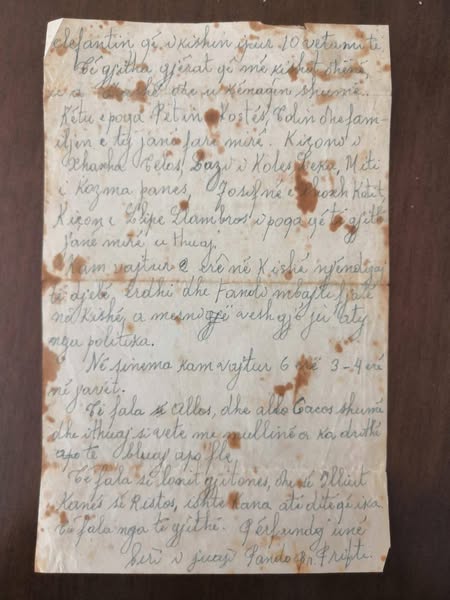 elefantin që i kishin prur 10 vetamitë
Të gjitha gjërat që më kishit thënë
u a dhe u kënaqën shumë.
Këtu e poqa Petin Kostës, Colin dhe fam-
iljen e tij janë fare mirë. Kiçoni i
Xhanha Celos, Lazi i Koles Leka, Miti
i Kozma panes, Josifnë e Kotit
Kiçon e Llambros i poqa që të gjithë
janë mirë u thuaj.
Kam vajtur e erë në Kishë një
të djelë erdhi dhe Fandi mbajti fjalë
në kishë, a mesni gjë vesh gjë ju aty
nga politika.
Në sinema kam vajtur 6 erë 3-4 erë
në javët.
Të fala si Allos, dhe aldo Cacos shumë
dhe ithuaj si vete me mullinë a ka drithë
apo të bluaj apo fle.
Të fala si lonit gjitones, dhe së
Kanës së Ristos, ishte kana ati ditë që ika.
të fala nga të gjithë. Përfundoj unë
biri i juaji Pando